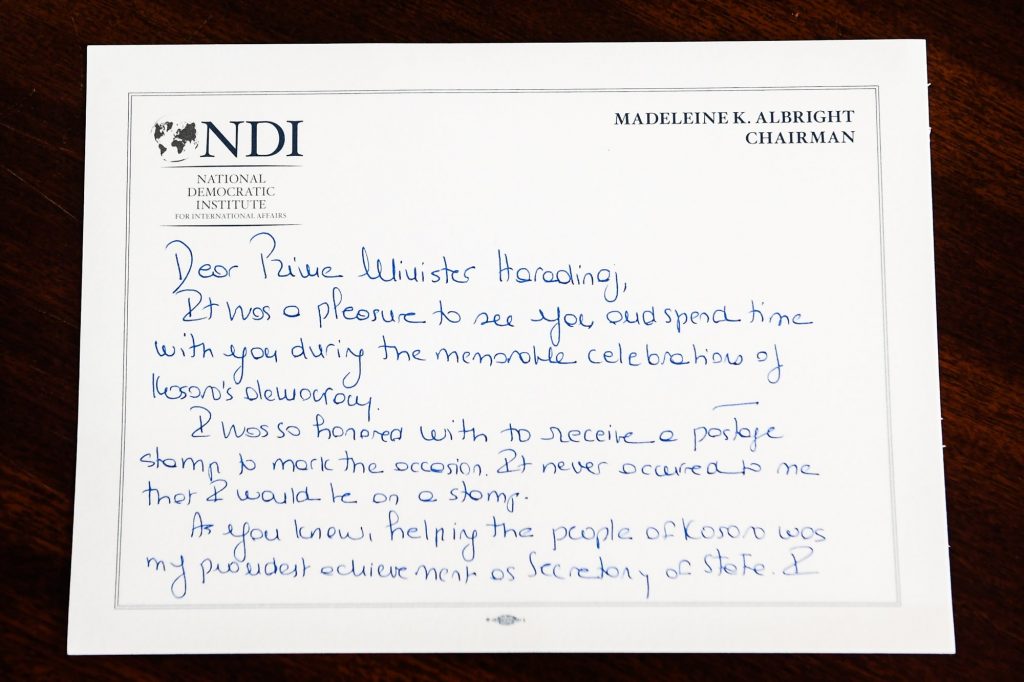 NDI
NATIONAL
DEMOCRATIC
INSTITUTE
FOR INTERNATIONAL AFFAIRS
MADELEINE K. ALBRIGHT
CHAIRMAN
Dear Prime Minister Haradinaj,
It was a pleasure to see you and spend time
with you during the memorable celebration of
Kosovo's democracy.
I was so honored with to receive a postage
stamp to mark the occasion. It never occurred to me
that I would be on a stamp.
As you know, helping the people of Kosovo was
my proudest achievement as Secretary of State. I